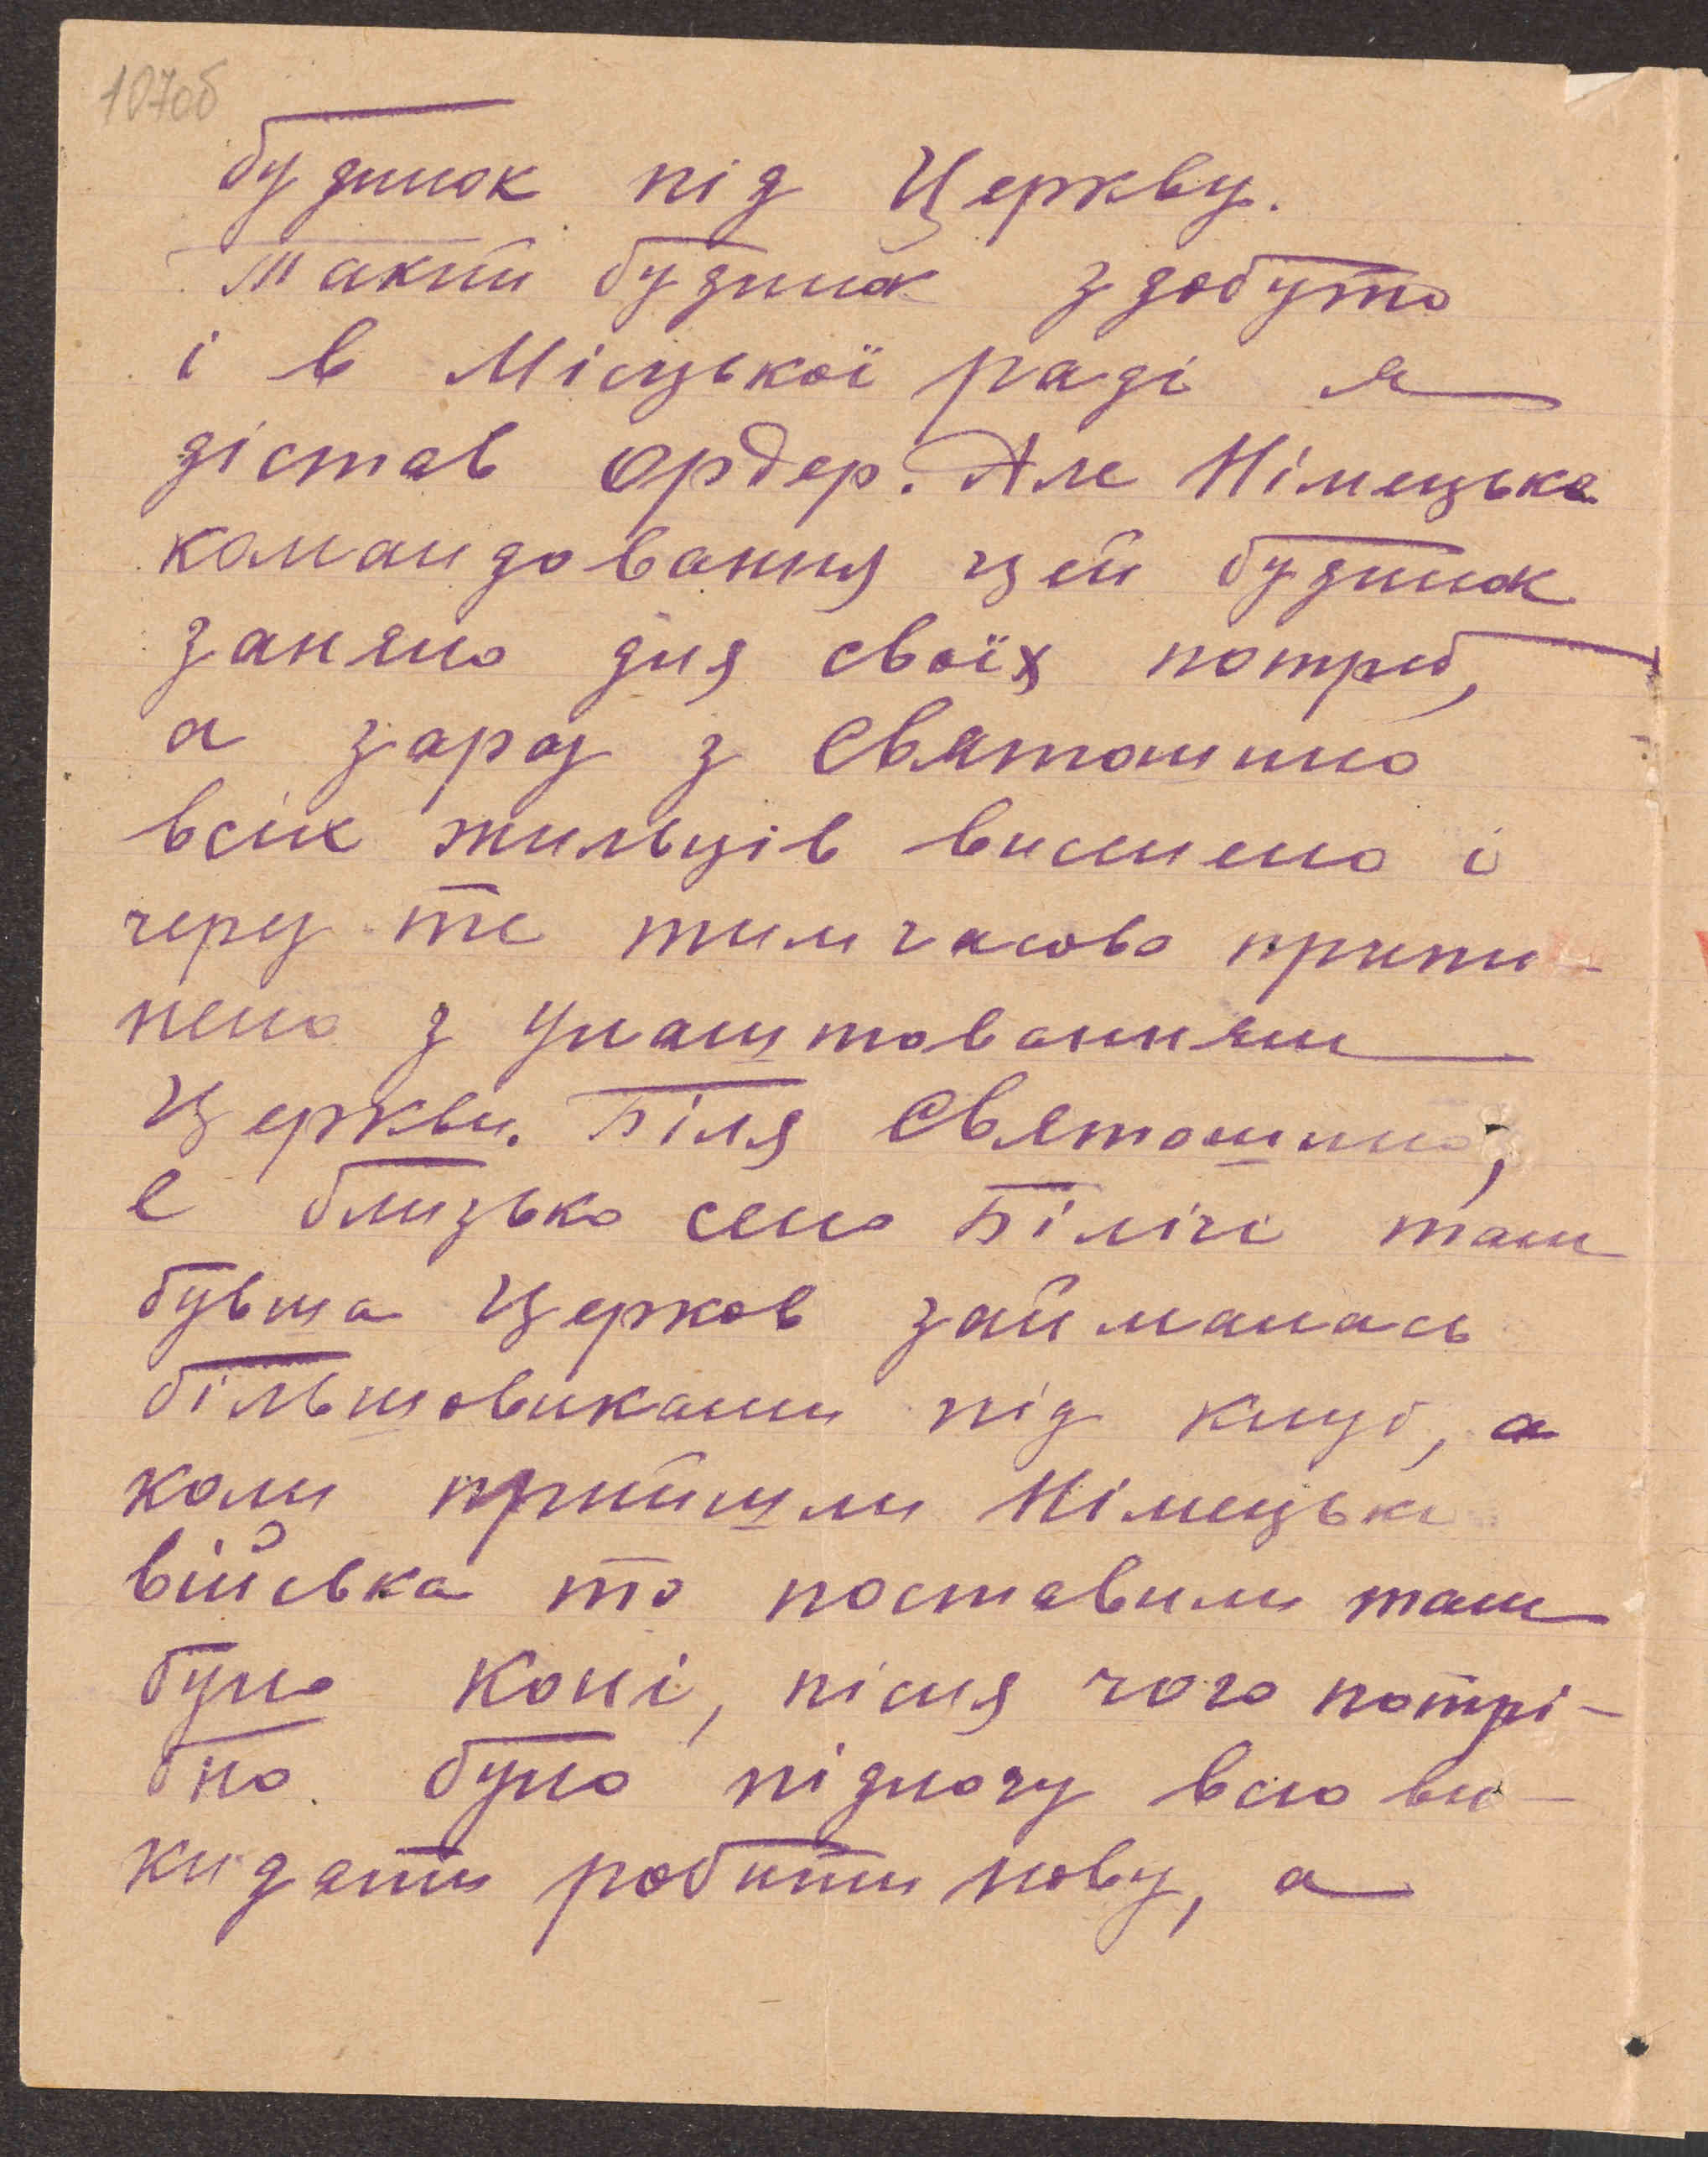 107об
будинок під Церкву.
Такий будинок здобуто
і в Місцької раді я
дістав ордер. Але Німецьке
командовання цей будинок
заняло для своїх потреб,
а зараз з Святошино
всіх жильців виселено і
через те тимчасово припи-
нено з улаштованням
Церкви. Біля Святошино,
е близько село Білічі там
бувша Церков займалась
більшовиками під клуб, а
коли прийшли Німецькі
війська то поставили там
було коні, після чого потрі-
бно було підлогу всю ви-
кидати робити нову, а